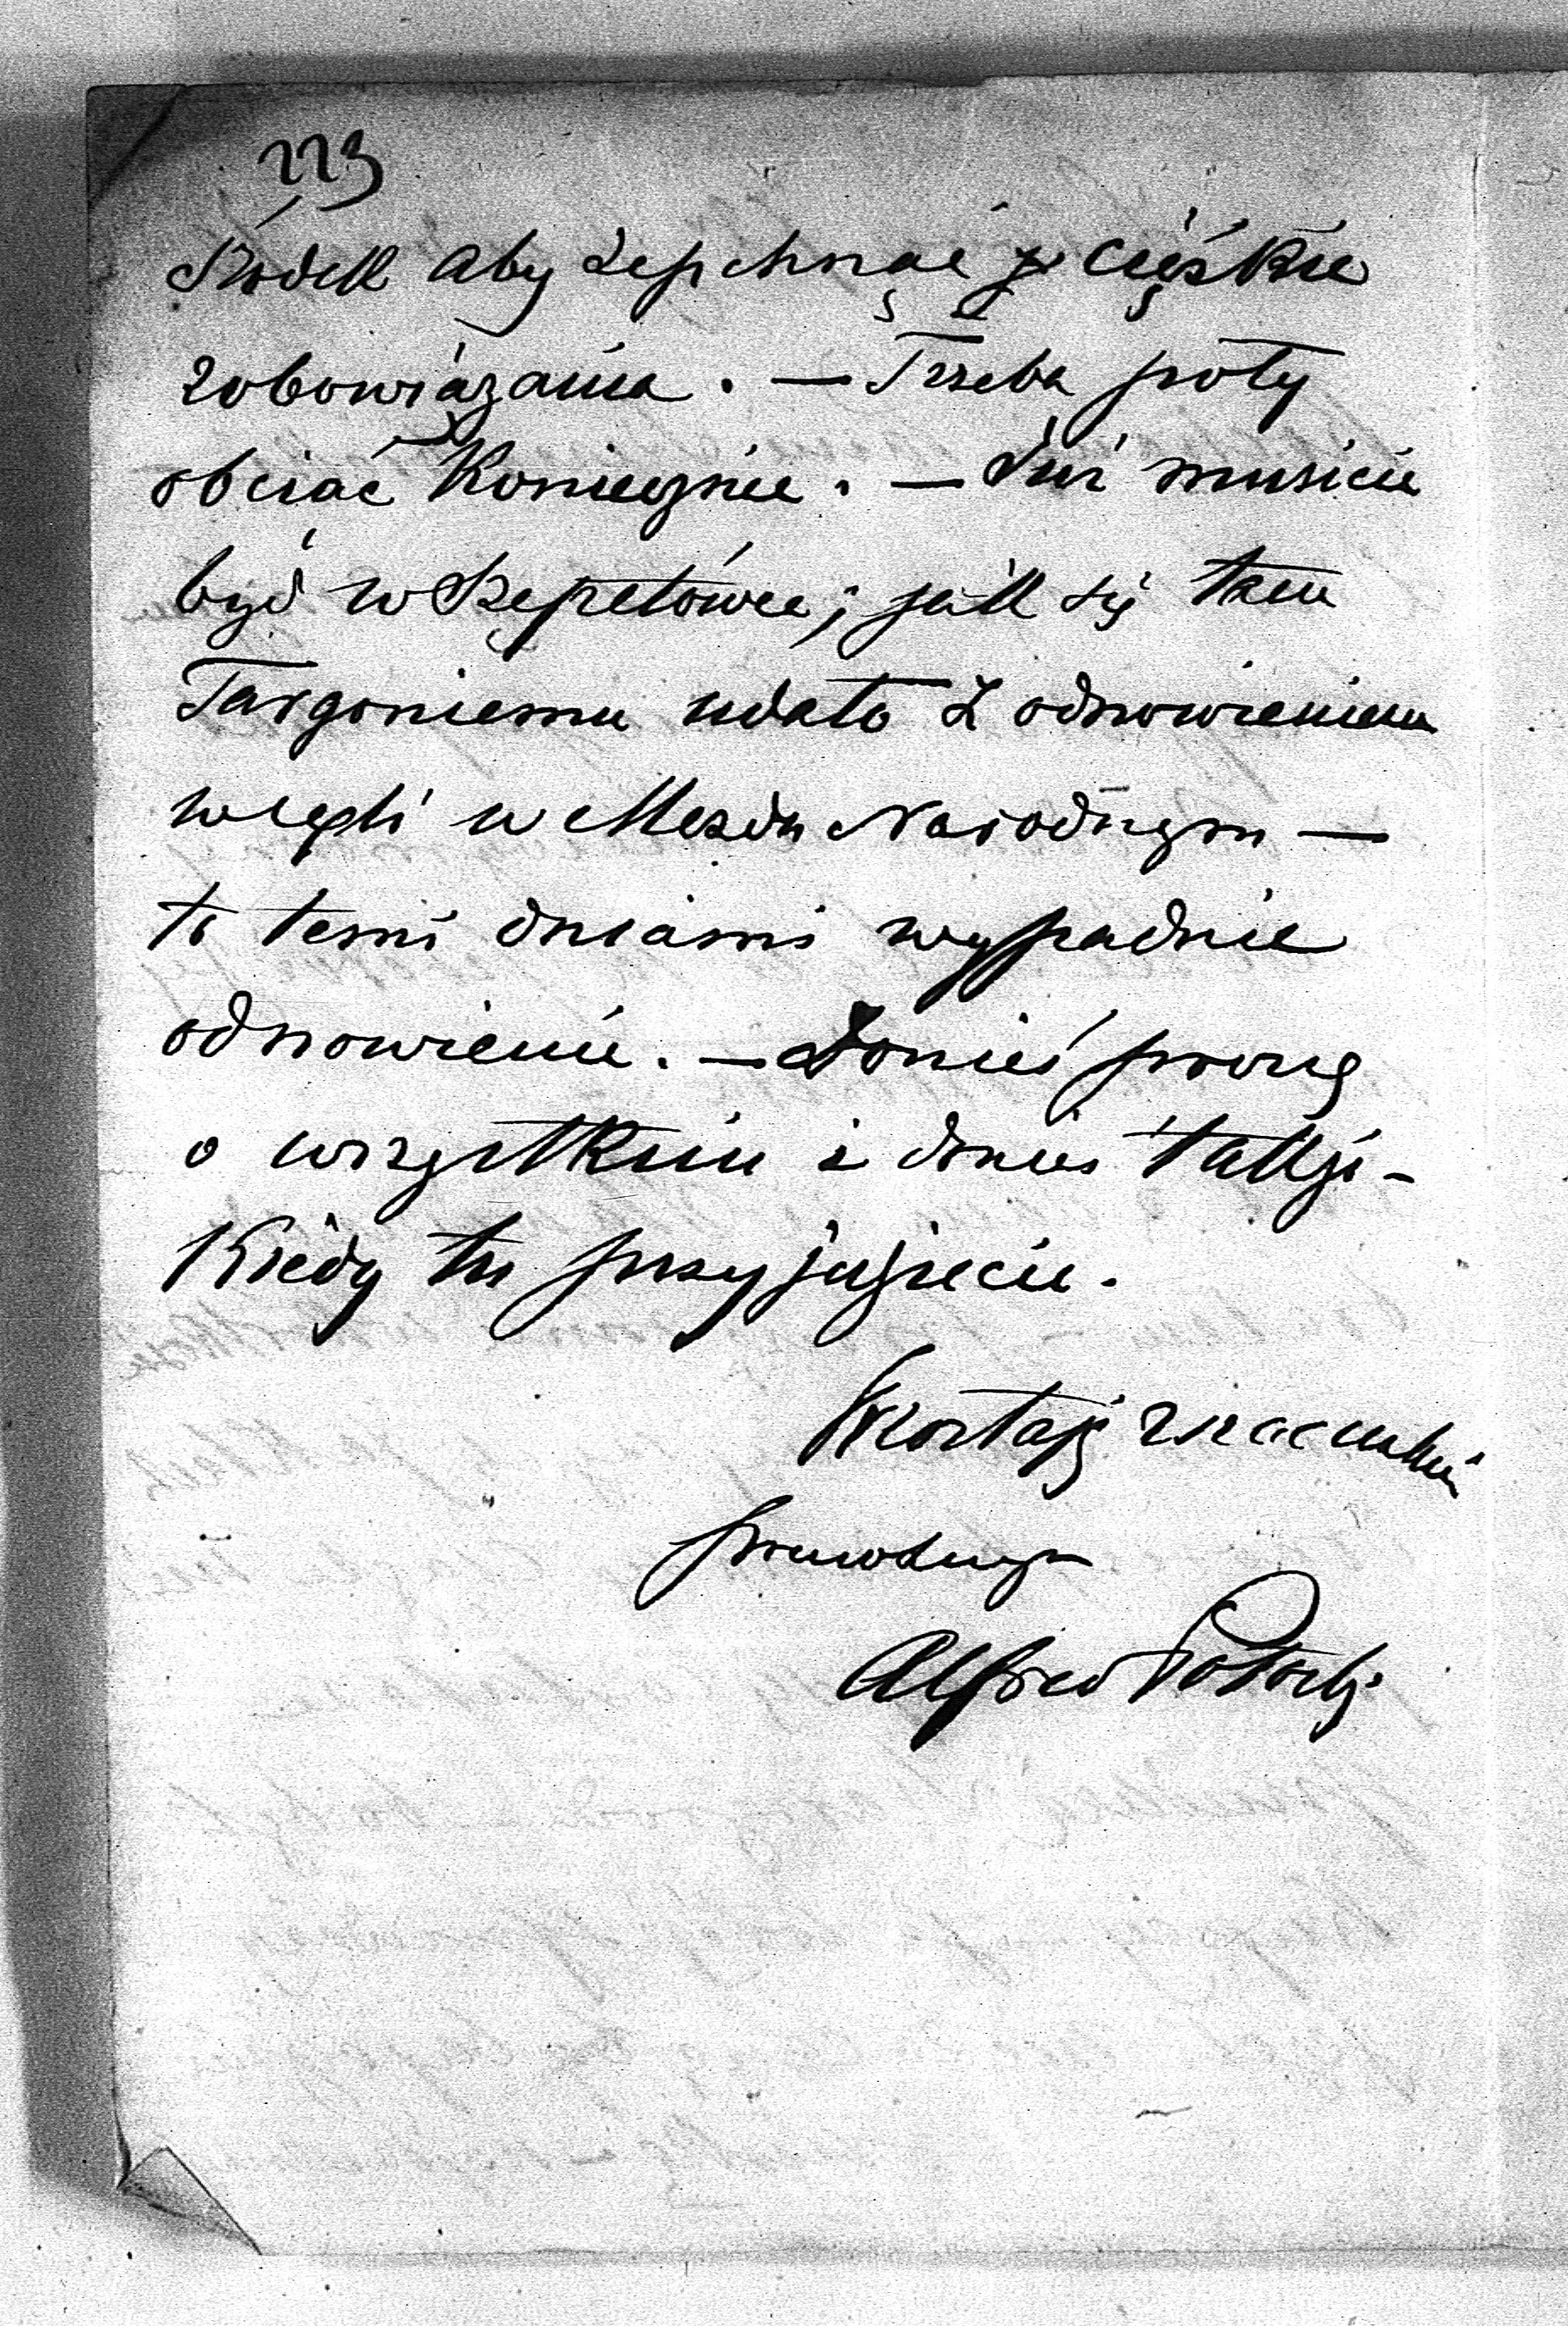 223
Środek aby zepchnąć ciężkie
zobowiązania. — Trzeba poły
obciąć Koniecznie. — Dziś musicie
być w Szepetówce; jak się tam
Targoniemu udało z odnowieniem
weksli w Mezdu Narodnym —
to temi dniami wypadnie
odnowienie. — Donieś proszę
o wszystkim i donieś także —
Kiedy tu przyjedziecie.
Zostaję z szacunkiem
prawdziwym
Alfred Potocki